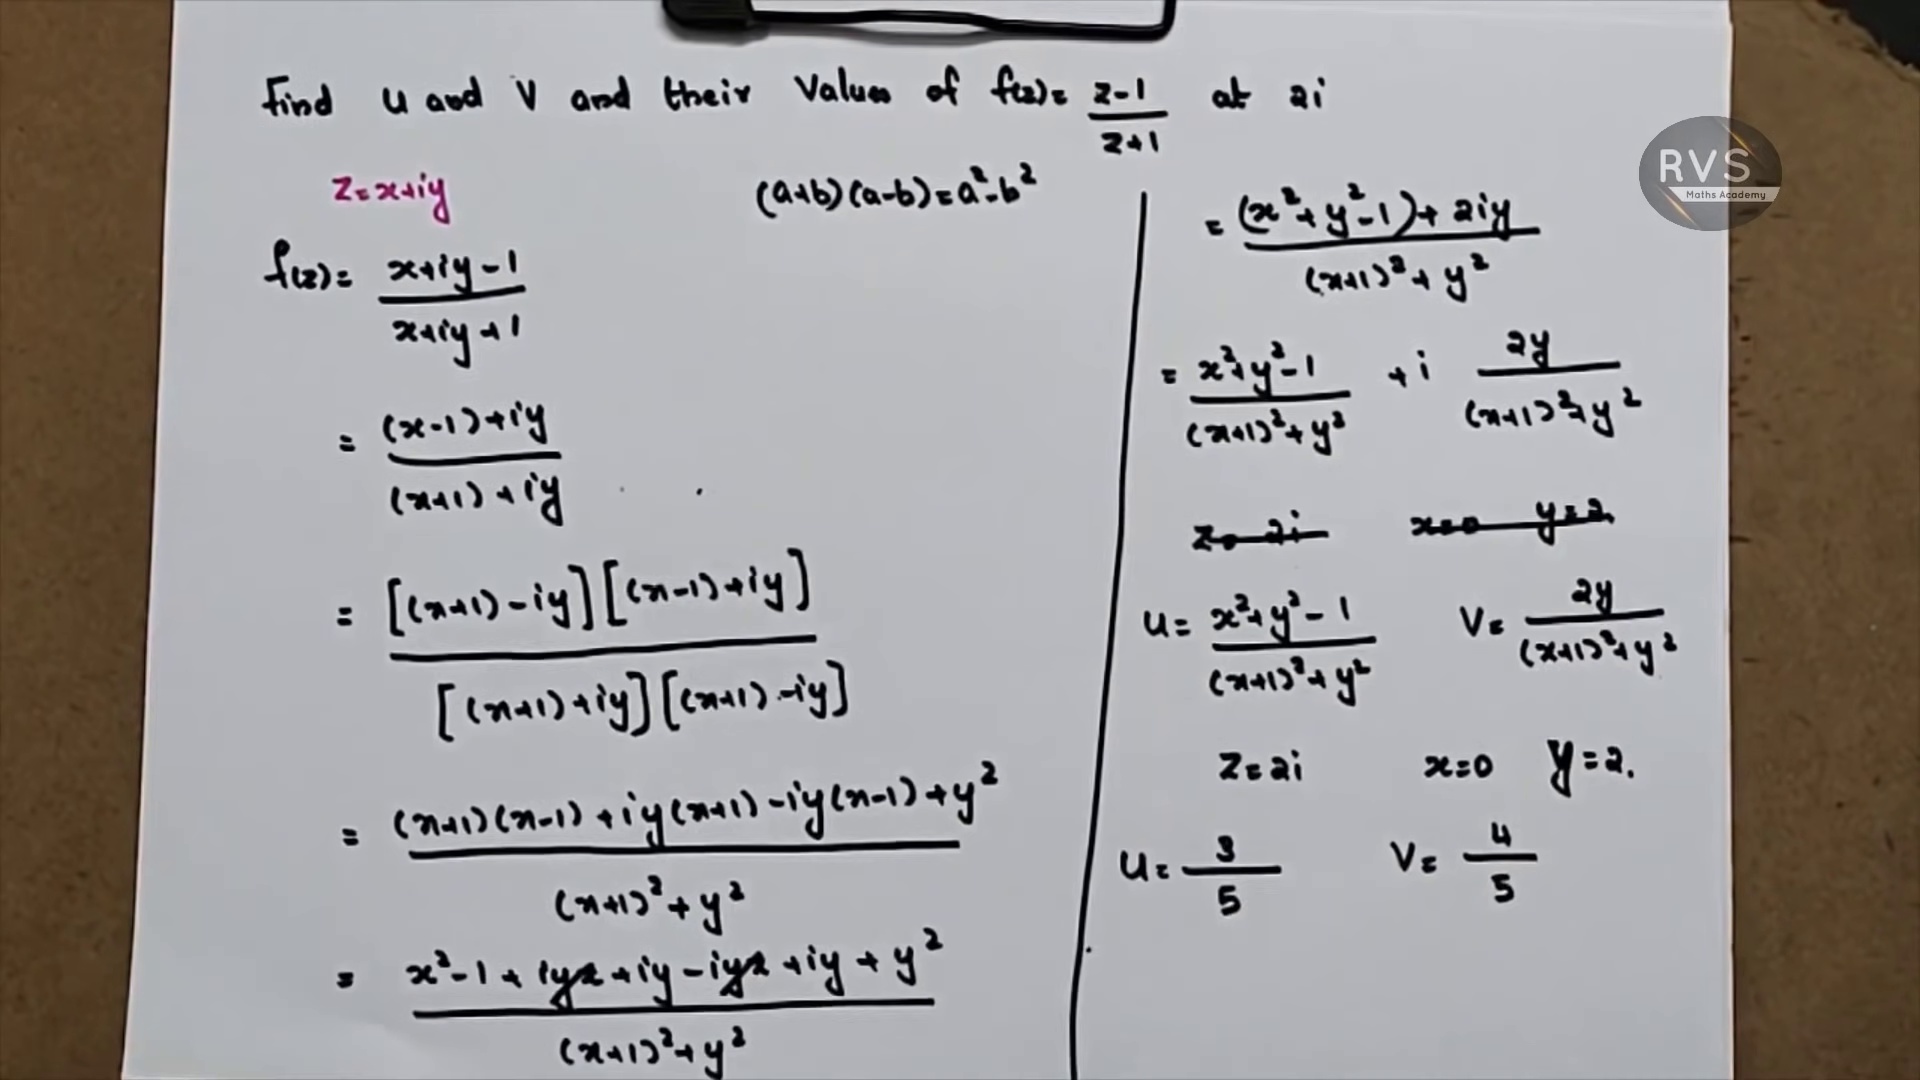 Find u and v and their values of f(z)= z-1/z+1 at 2i
z=x+iy
(a+b)(a-b)=a²-b²
f(z)= x+iy-1/x+iy+1
= (x-1)+iy/(x+1)+iy
= [(x+1)-iy][(x-1)+iy]/[(x+1)+iy][(x+1)-iy]
= (x+1)(x-1)+iy(x+1)-iy(x-1)+y²/(x+1)²+y²
= x²-1+iyx+iy-iyx+iy+y²/(x+1)²+y²
= (x²+y²-1)+2iy/(x+1)²+y²
= x²+y²-1/(x+1)²+y² +i 2y/(x+1)²+y²
z=2i x=0 y=2.
u= x²+y²-1/(x+1)²+y² v= 2y/(x+1)²+y²
z=2i x=0 y=2.
u= 3/5 v= 4/5
RVS
Maths Academy